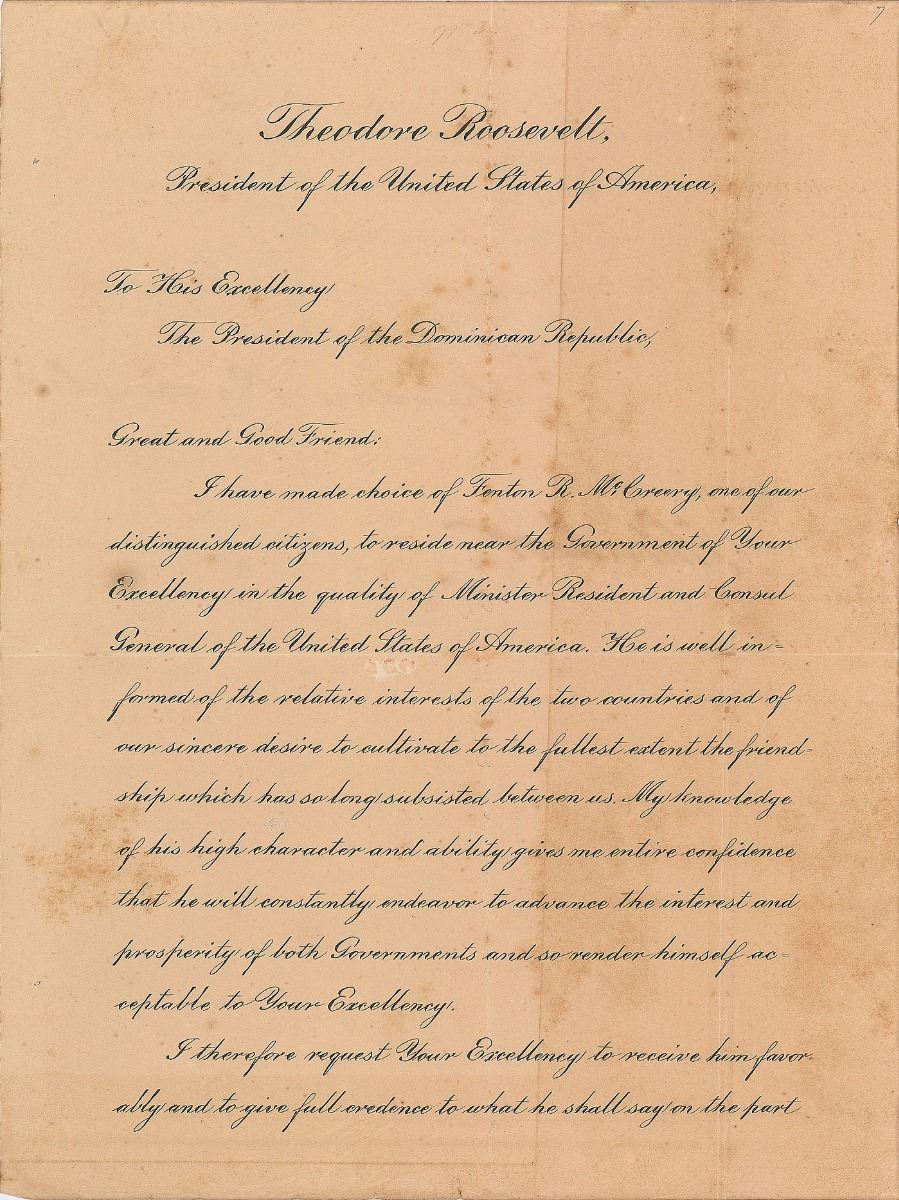 7
Theodore Roosevelt,
President of the United States of America,
To His Excellency
The President of the Dominican Republic,
Great and Good Friend:
I have made choice of Fenton R. McCreery, one of our
distinguished citizens, to reside near the Government of Your
Excellency in the quality of Minister Resident and Consul
General of the United States of America. He is well in=
formed of the relative interests of the two countries and of
our sincere desire to cultivate to the fullest extent the friend=
ship which has so long subsisted between us. My knowledge
of his high character and ability gives me entire confidence
that he will constantly endeavor to advance the interest and
prosperity of both Governments and so render himself ac=
ceptable to Your Excellency.
I therefore request Your Excellency to receive him favor-
ably and to give full credence to what he shall say on the part